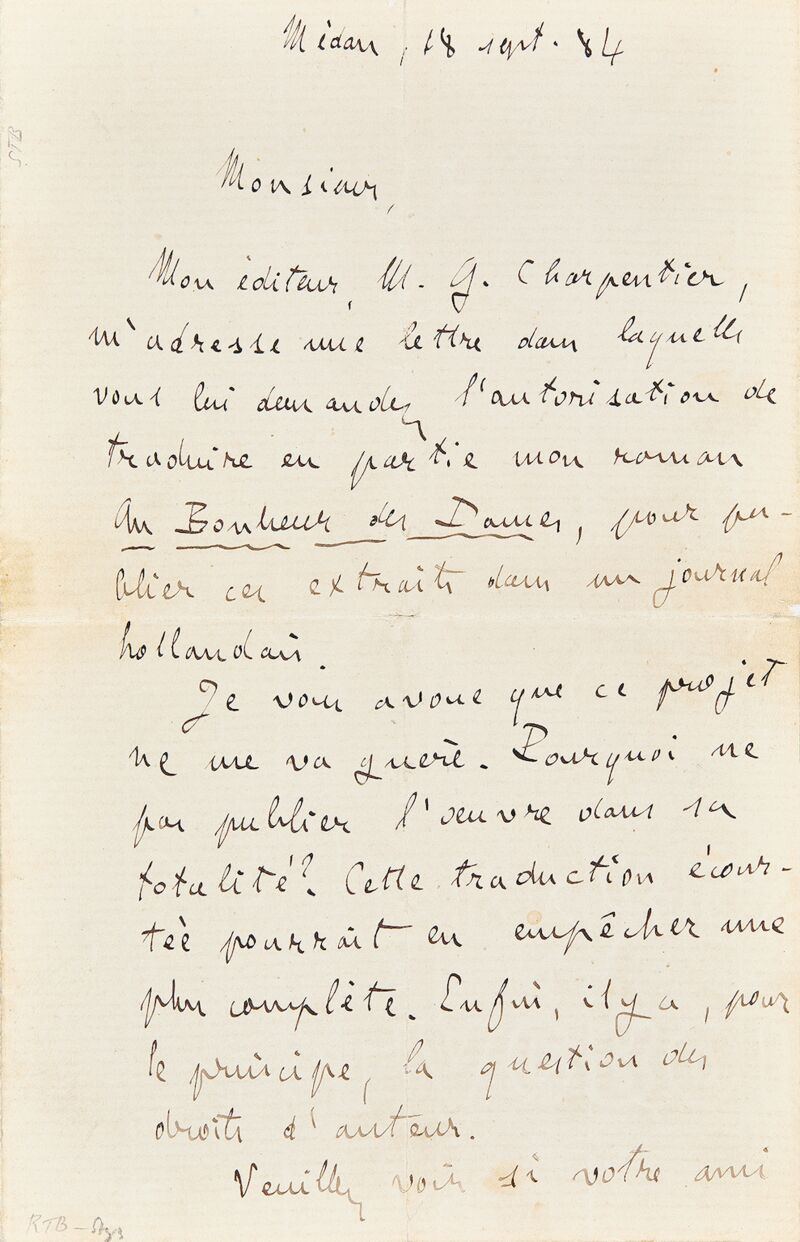 Médan, 18 sept. 84
STB
Monsieur,
Mon éditeur, M. G. Charpentier,
m'adresse une lettre dans laquelle
vous lui demandez l'autorisation de
traduire en partie mon roman
Au Bonheur des Dames, pour pu-
blier ces extraits dans un journal
hollandais.
Je vous avoue que ce projet
ne me va guère. Pourquoi ne
pas publier l'œuvre dans sa
totalité? Cette traduction écour-
tée pourrait en empêcher une
plus complète. Enfin, il y a, pour
le principe, la question des
droits d'auteur.
Veuillez voir si votre ami
RTB –